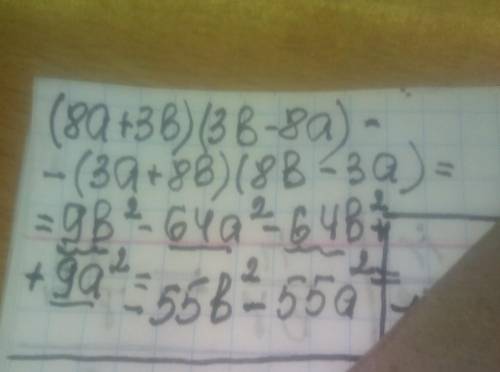 (8a+3b)(3b-8a)-
-(3a+8b)(8b-3a)=
=9b²-64a²-64b²+
+9a²=-55b²-55a²=